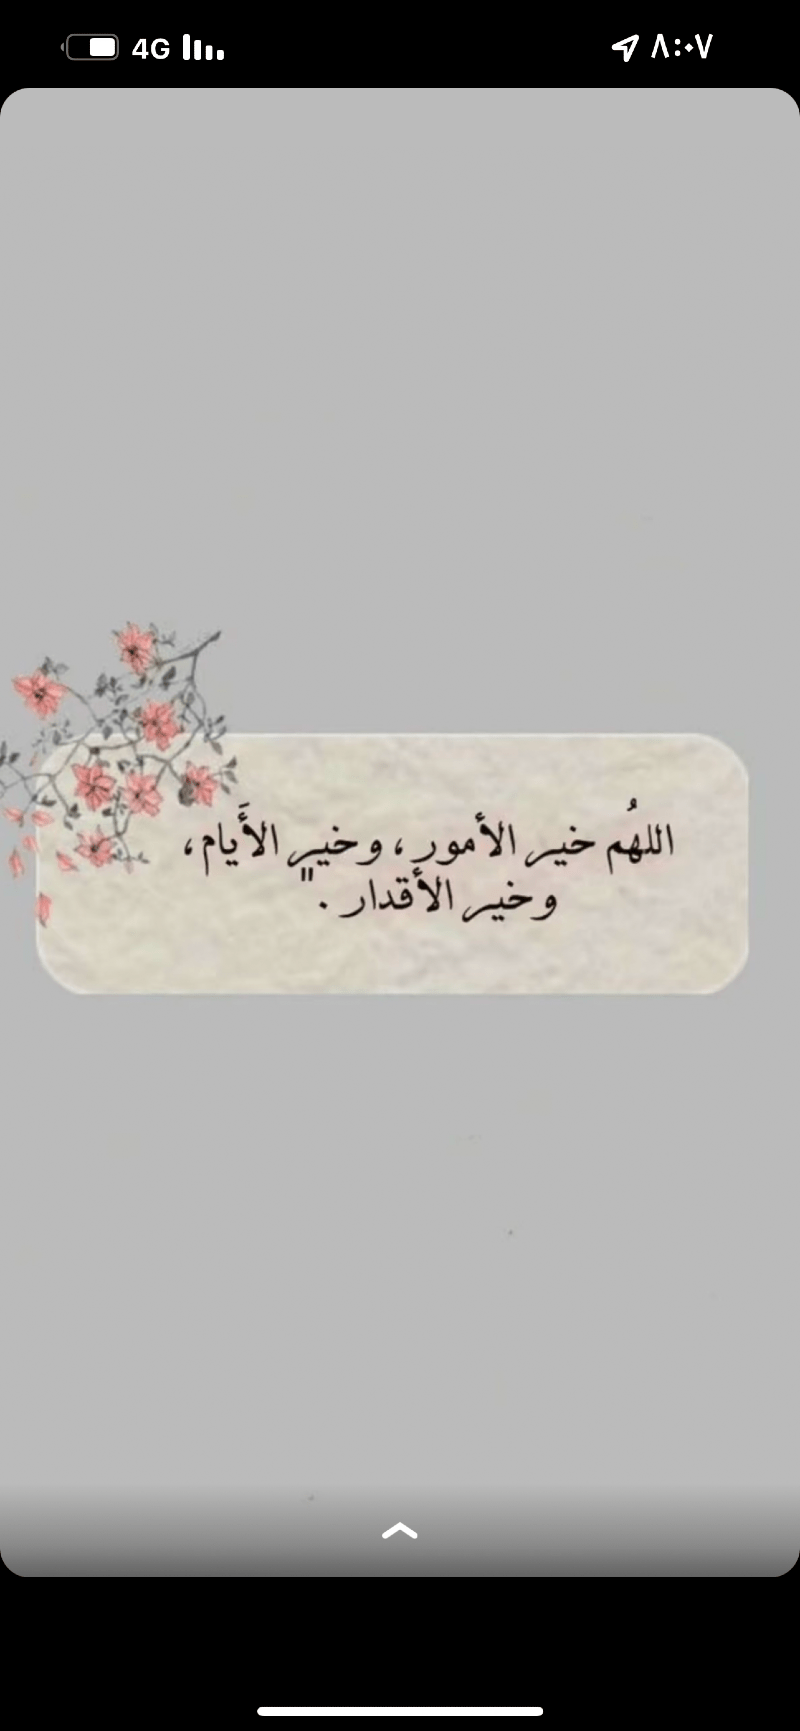 4G ٨:٠٧
اللهُم خير الأمور ، و خير الأَيام ،
و خير الأقدار . "